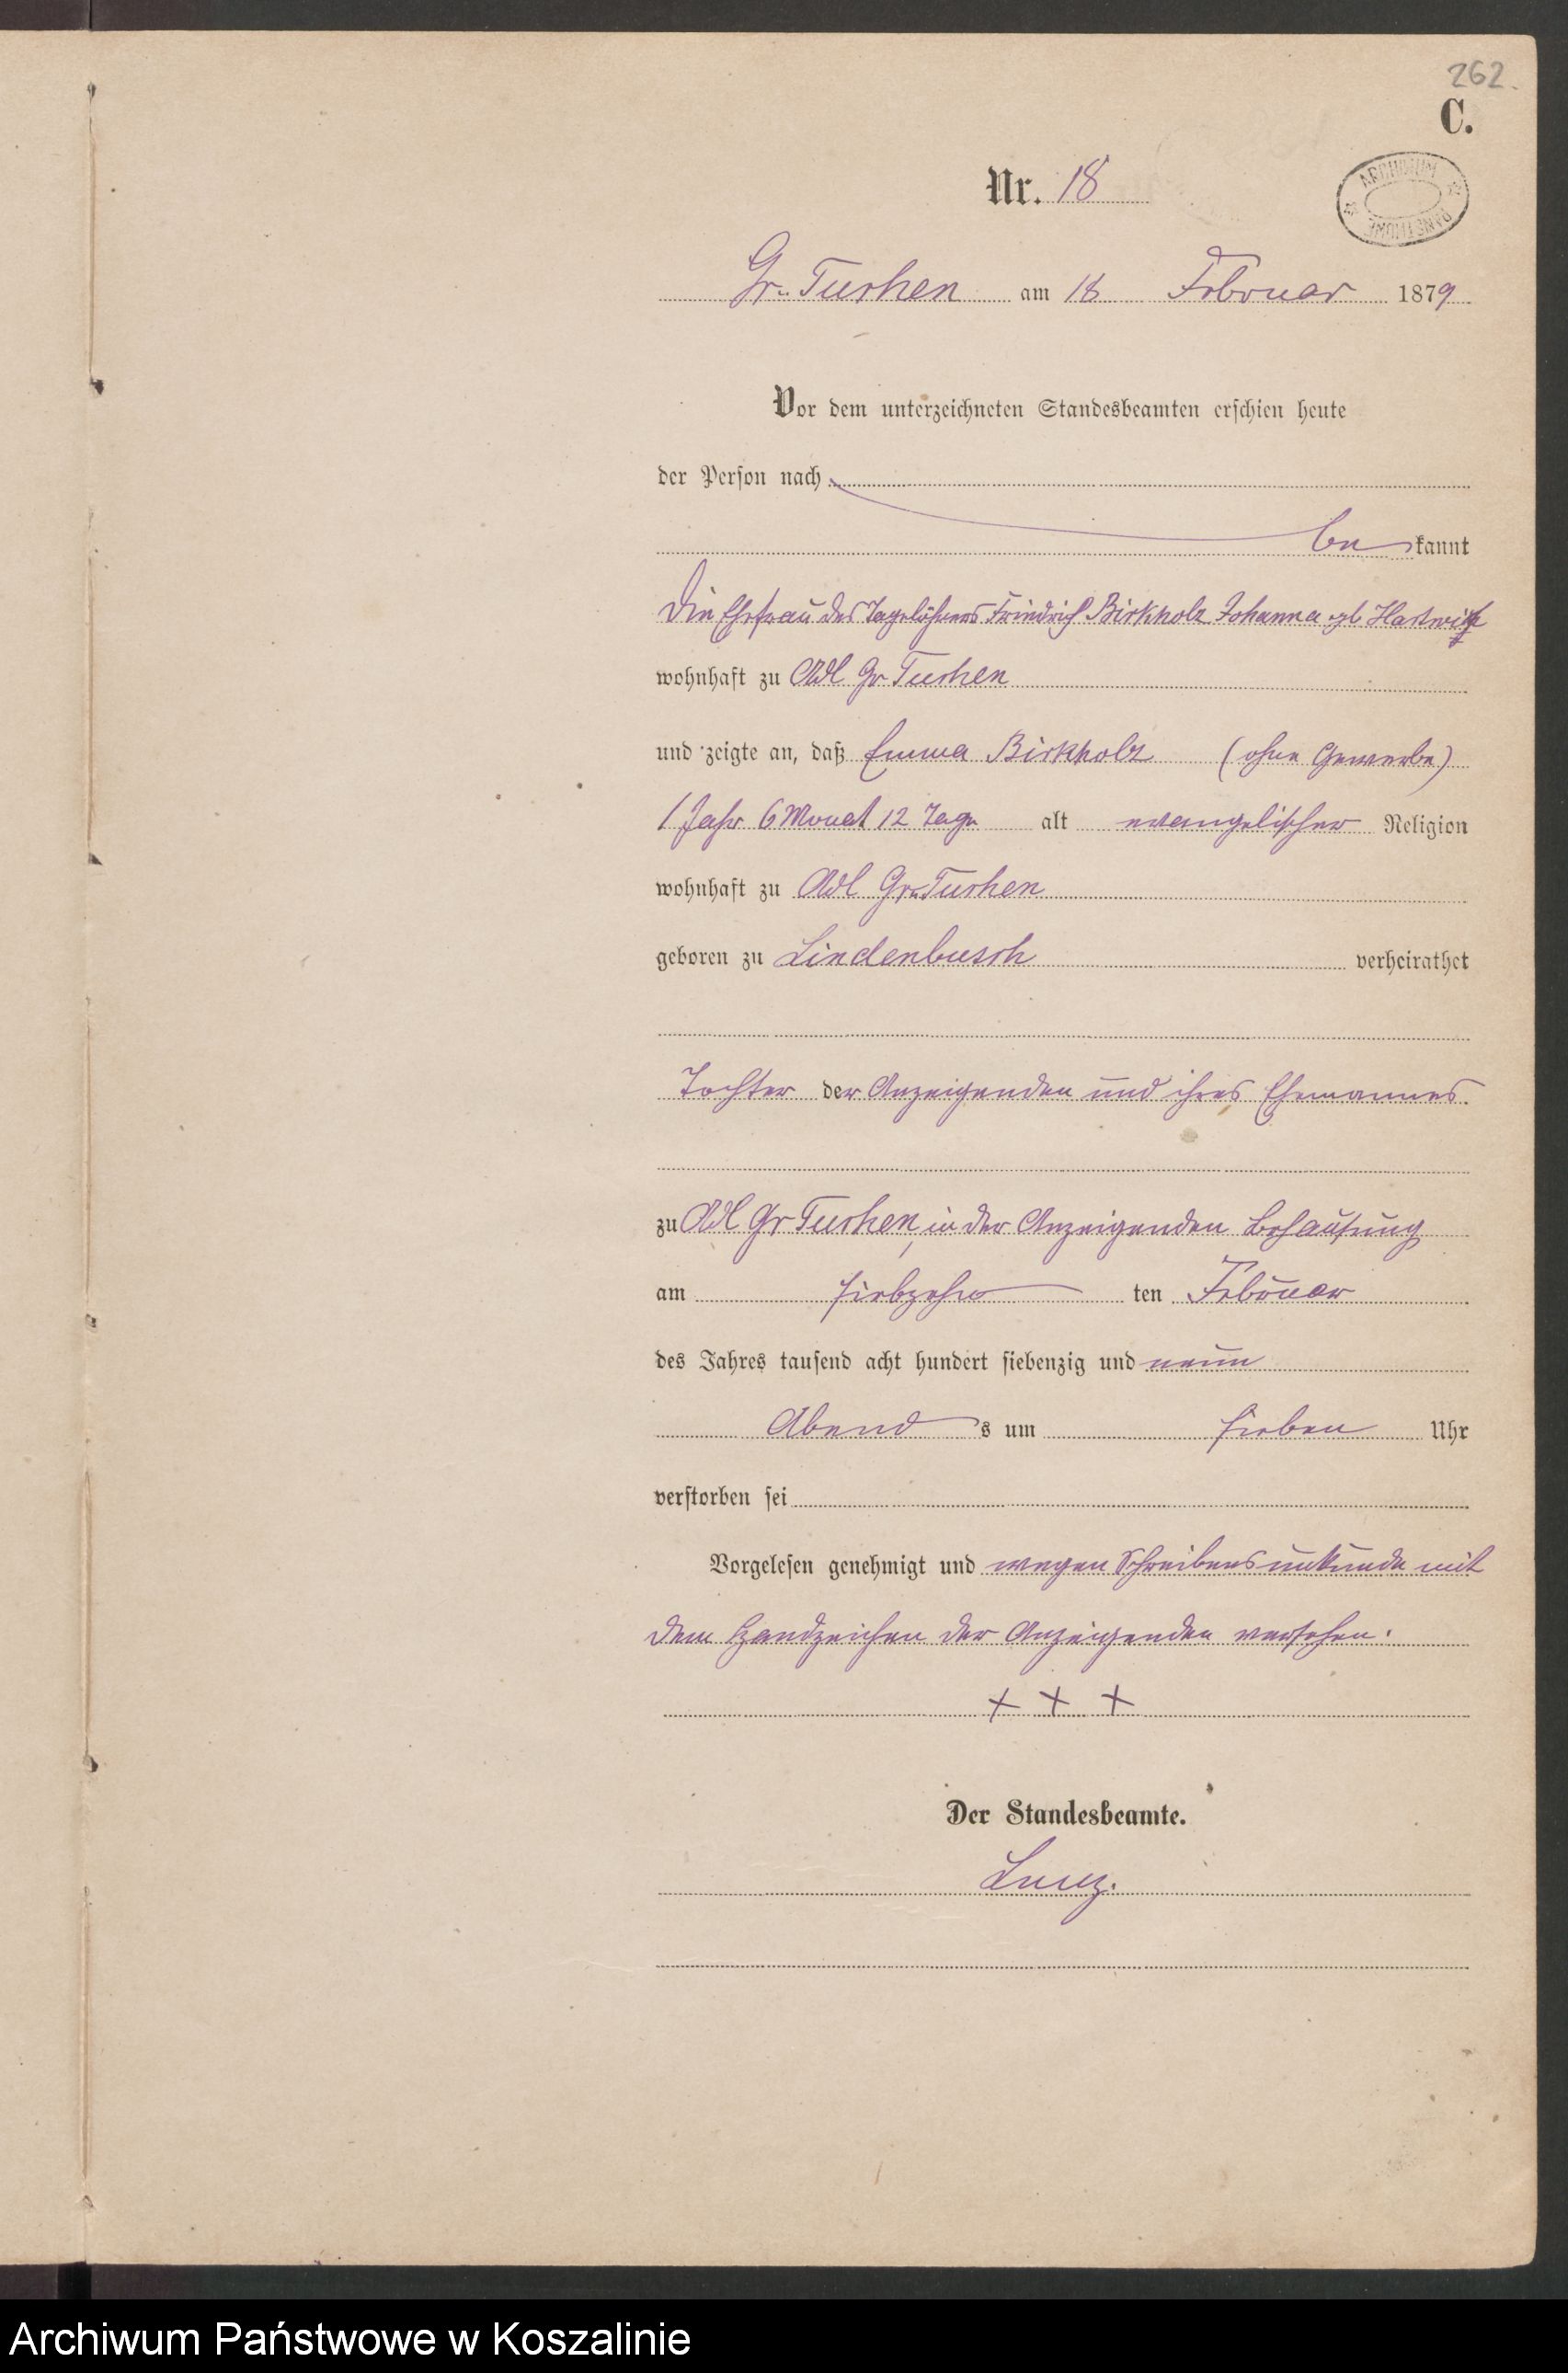 262.
C.
ARCHIWUM PAŃSTWOWE
Nr. 18
Gr. Tuchen am 18 Februar 1879
Vor dem unterzeichneten Standesbeamten erschien heute
der Person nach
bekannt
Die Ehefrau des Tagelöhners Friedrich Birkholz Johanna gb Hartwig
wohnhaft zu Adl Gr Tuchen
und zeigte an, daß Emma Birkholz (ohne Gewerbe)
1 Jahr 6 Monat 12 Tage alt evangelischer Religion
wohnhaft zu Adl Gr Tuchen
geboren zu Lindenbusch verheirathet
Tochter der Anzeigenden und ihres Ehemannes.
zu Adl Gr Tuchen, in der Anzeigenden Behausung
am siebzehn ten Februar
des Jahres tausend acht hundert siebenzig und neun
Abends um sieben Uhr
verstorben sei
Vorgelesen genehmigt und wegen Schreibensunkunde mit
dem Handzeichen der Anzeigenden versehen.
+ + +
Der Standesbeamte.
Archiwum Państwowe w Koszalinie